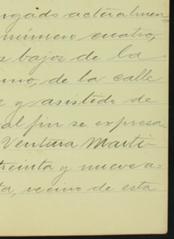 ogado actualmen
número cuatro,
s bajos de la
uno, de la calle
e y asistido de
al fin se expresa
Ventura Marti-
treinta y nueve a-
ta, vecino de esta